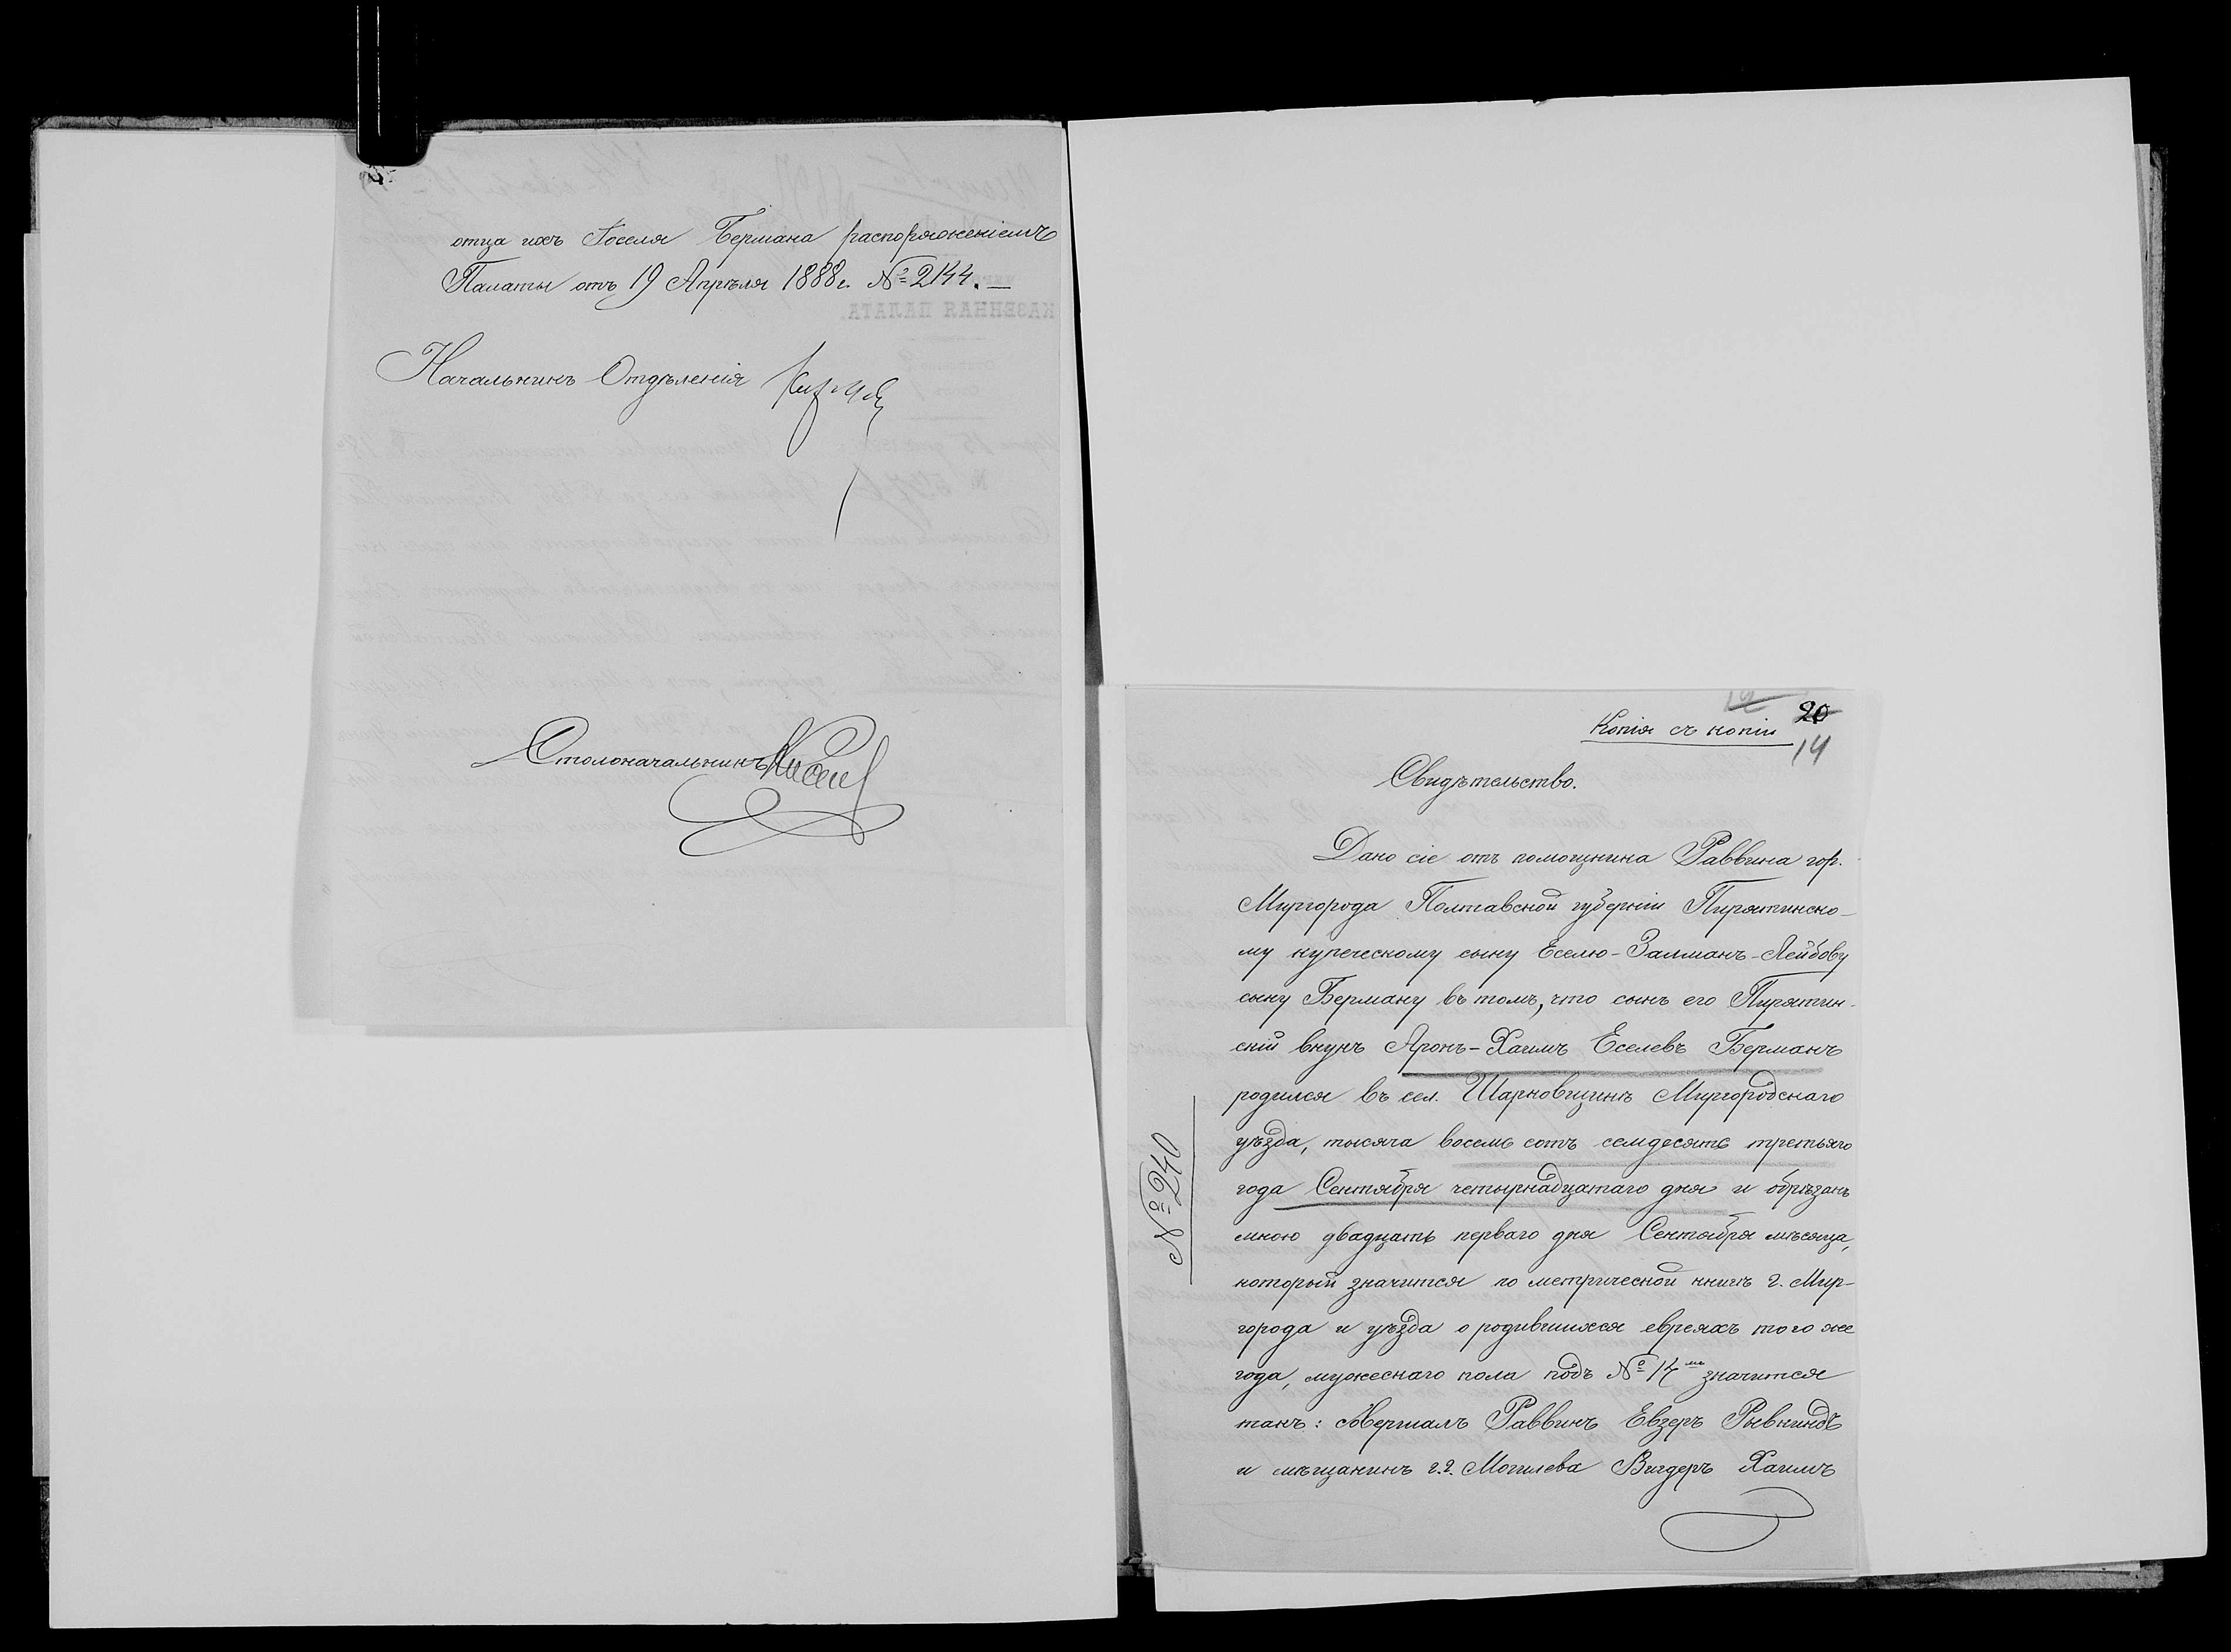 отца ихъ Іоселя Бермана распоряженіемъ
Палаты отъ 19 Апрѣля 1888 г. № 2144. —
КАЗЕННАЯ ПАЛАТА.
Начальникъ Отдѣленія
Столоначальникъ
20
Копія съ копіи
14
Свидѣтельство.
Дано сіе отъ помощника Раввина гор.
Миргорода Полтавской губерніи Пирятинско-
му купеческому сыну Еселю-Залманъ-Лейбову
сыну Берману въ томъ, что сынъ его Пирятин-
скій внукъ Аронъ-Хаимъ Еселевъ Берманъ
родился въ сел. Шарковщинѣ Миргородскаго
уѣзда, тысяча восемь сотъ семдесятъ третьяго
года Сентября четырнадцатаго дня и обрѣзанъ
мною двадцать перваго дня Сентября мѣсяца,
который значится по метрической книгѣ г. Мир-
города и уѣзда о родившихся евреяхъ того же
года, мужескаго пола подъ № значится
такъ: Раввинъ Евзеръ Рывкиндъ
и мѣщанинъ г.г. Могилева Вигдеръ Хаимъ
№ 240